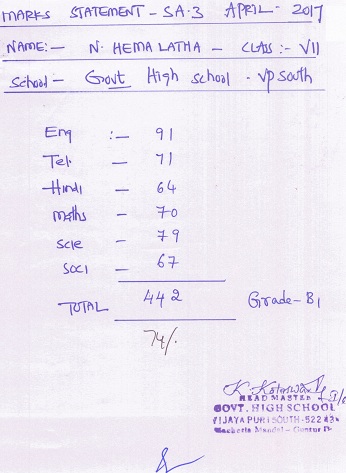 MARKS STATEMENT - SA-3 APRIL - 2017
NAME:- N. HEMA LATHA - CLASS :- VII
School - Govt High school - VP south
Eng :- 91
Tel - 71
Hindi - 64
Maths - 70
Scie - 79
Soci - 67
TOTAL 442 Grade - B1
74%
HEAD MASTER
GOVT. HIGH SCHOOL
VIJAYA PURI SOUTH-522
Macherla Mandal - Guntur